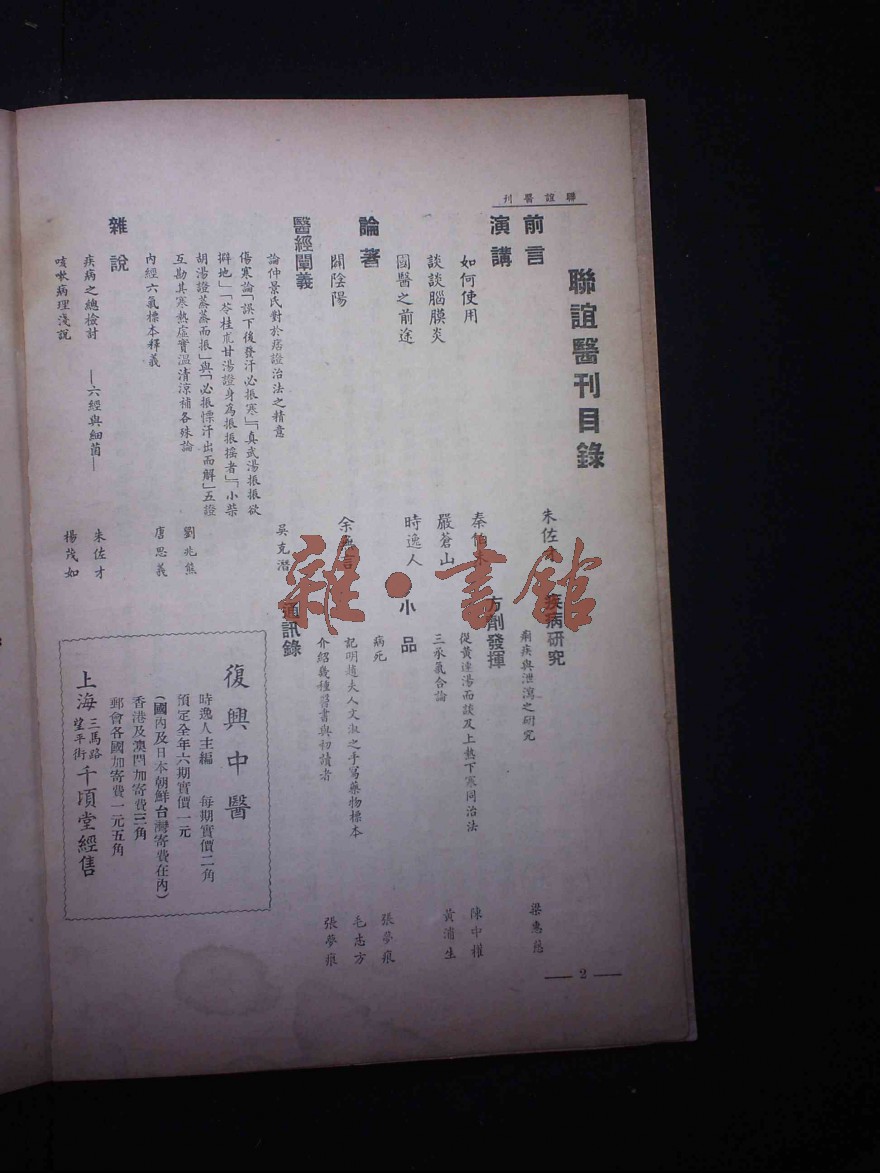 聯誼醫刊
聯誼醫刊目錄
前言
朱佐才
演講
如何使用
秦伯未
談談腦膜炎
嚴蒼山
國醫之前途
時逸人
論著
闢陰陽
余無言
醫經闡義
論仲景氏對於痞證治法之精意
吳克潛
傷寒論「誤下後發汗必振寒」「真武湯振振欲
擗地」「苓桂朮甘湯證身為振振搖者」「小柴
胡湯證蒸蒸而振」與「必振慄汗出而解」五證
互勘其寒熱虛實溫清涼補各殊論
劉兆熊
內經六氣標本釋義
唐思義
雜說
疾病之總檢討 —六經與細菌—
朱佐才
咳嗽病理淺說
楊茂如
疾病研究
痢疾與泄瀉之研究
梁惠慈
方劑發揮
從黃連湯而談及上熱下寒同治法
陳中權
三承氣合論
黃浦生
小品
病死
張夢痕
記明趙夫人文淑之手寫藥物標本
毛志方
介紹幾種醫書與初讀者
張夢痕
通訊錄
復興中醫
時逸人主編 每期實價二角
預定全年六期實價一元
(國內及日本朝鮮台灣寄費在內)
香港及澳門加寄費三角
郵會各國加寄費一元五角
上海三馬路望平街千頃堂經售
— 2 —
雜·書館